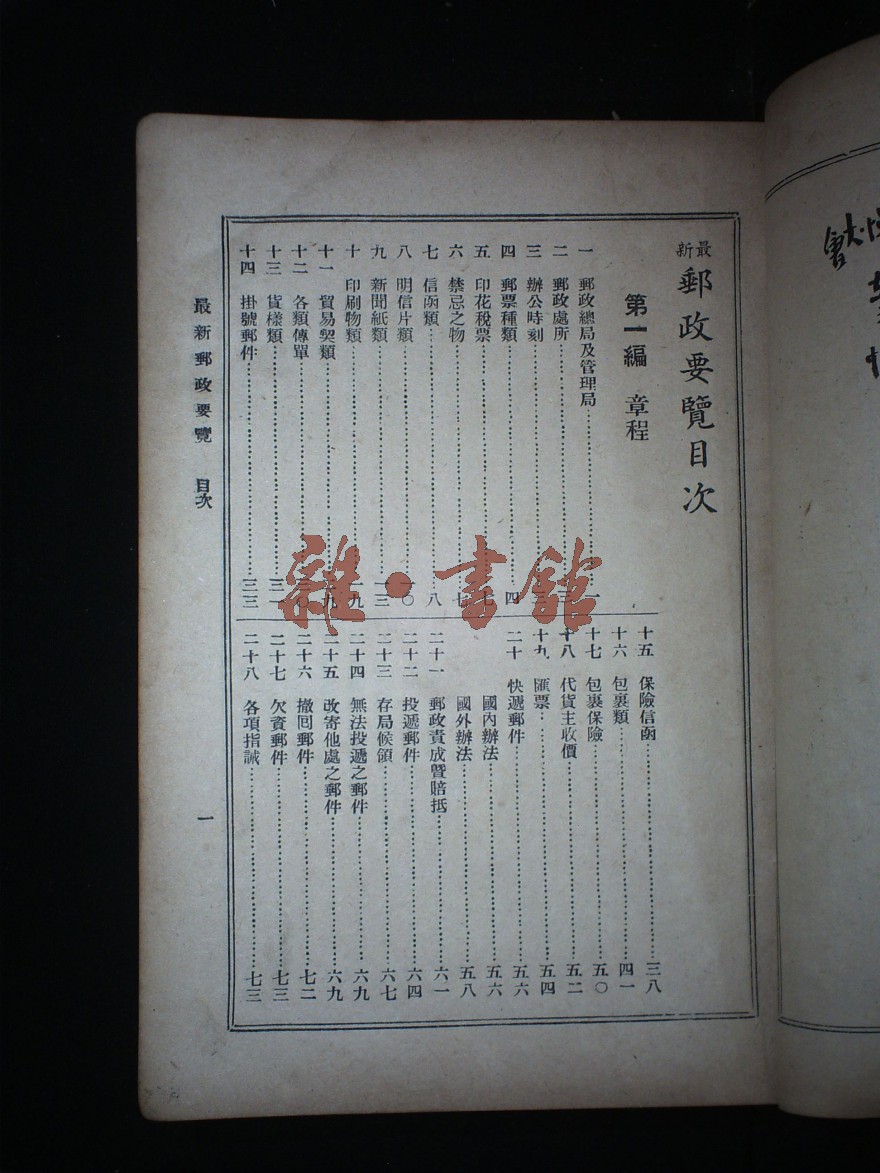 最新郵政要覽目次
第一編　章程
一　郵政總局及管理局……一
二　郵政處所……
三　辦公時刻……
四　郵票種類……四
五　印花稅票……
六　禁忌之物……七
七　信函類……八
八　明信片類……一〇
九　新聞紙類……一三
十　印刷物類……一九
十一　貿易契類……
十二　各類傳單……
十三　貨樣類……三一
十四　掛號郵件……三三
十五　保險信函……三八
十六　包裹類……四一
十七　包裹保險……五〇
十八　代貨主收價……五二
十九　匯票……五四
二十　快遞郵件……五六
國內辦法……五六
國外辦法……五八
二十一　郵政責成暨賠抵……六一
二十二　投遞郵件……六四
二十三　存局候領……六七
二十四　無法投遞之郵件……六九
二十五　改寄他處之郵件……六九
二十六　撤回郵件……七二
二十七　欠資郵件……七三
二十八　各項指誡……七三
最新郵政要覽　目次　一
雜·書館